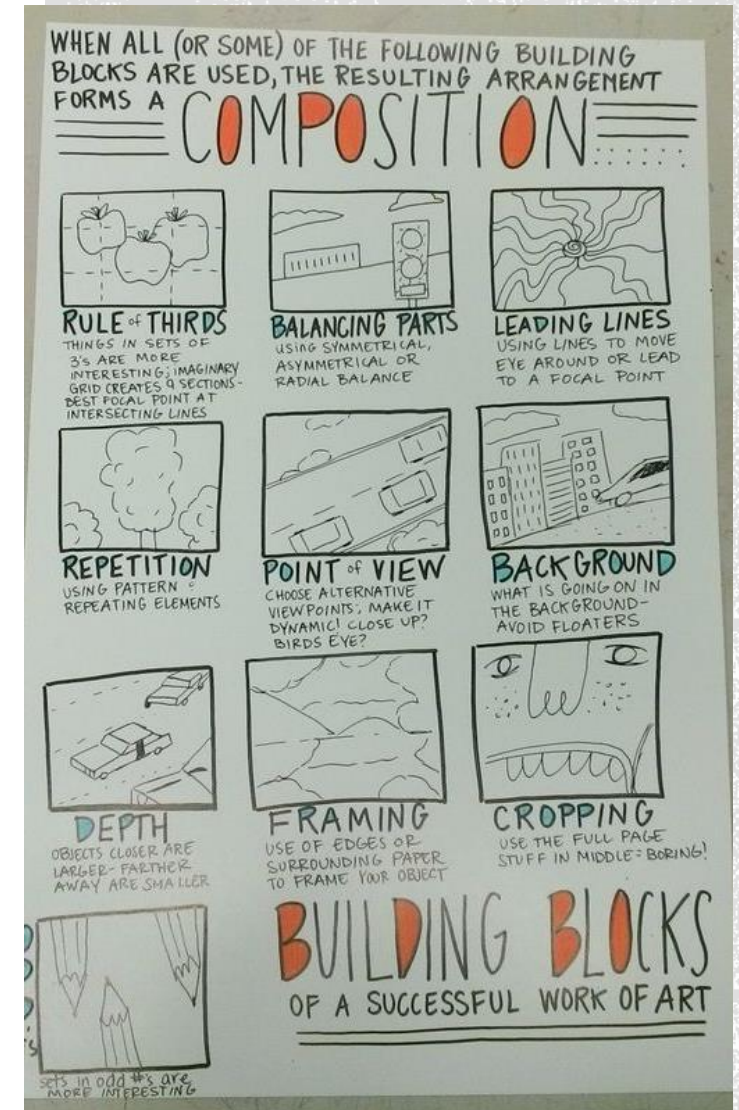 WHEN ALL (OR SOME) OF THE FOLLOWING BUILDING
BLOCKS ARE USED, THE RESULTING ARRANGEMENT
FORMS A COMPOSITION
RULE of THIRDS
THINGS IN SETS OF
3's ARE MORE
INTERESTING; IMAGINARY
GRID CREATES 9 SECTIONS-
BEST FOCAL POINT AT
INTERSECTING LINES
BALANCING PARTS
USING SYMMETRICAL,
ASYMMETRICAL OR
RADIAL BALANCE
LEADING LINES
USING LINES TO MOVE
EYE AROUND OR LEAD
TO A FOCAL POINT
REPETITION
USING PATTERN &
REPEATING ELEMENTS
POINT of VIEW
CHOOSE ALTERNATIVE
VIEWPOINTS; MAKE IT
DYNAMIC! CLOSE UP?
BIRDS EYE?
BACKGROUND
WHAT IS GOING ON IN
THE BACKGROUND-
AVOID FLOATERS
DEPTH
OBJECTS CLOSER ARE
LARGER- FARTHER
AWAY ARE SMALLER
FRAMING
USE OF EDGES OR
SURROUNDING PAPER
TO FRAME YOUR OBJECT
CROPPING
USE THE FULL PAGE
STUFF IN MIDDLE = BORING!
sets in odd #'s are
MORE INTERESTING
BUILDING BLOCKS
OF A SUCCESSFUL WORK OF ART